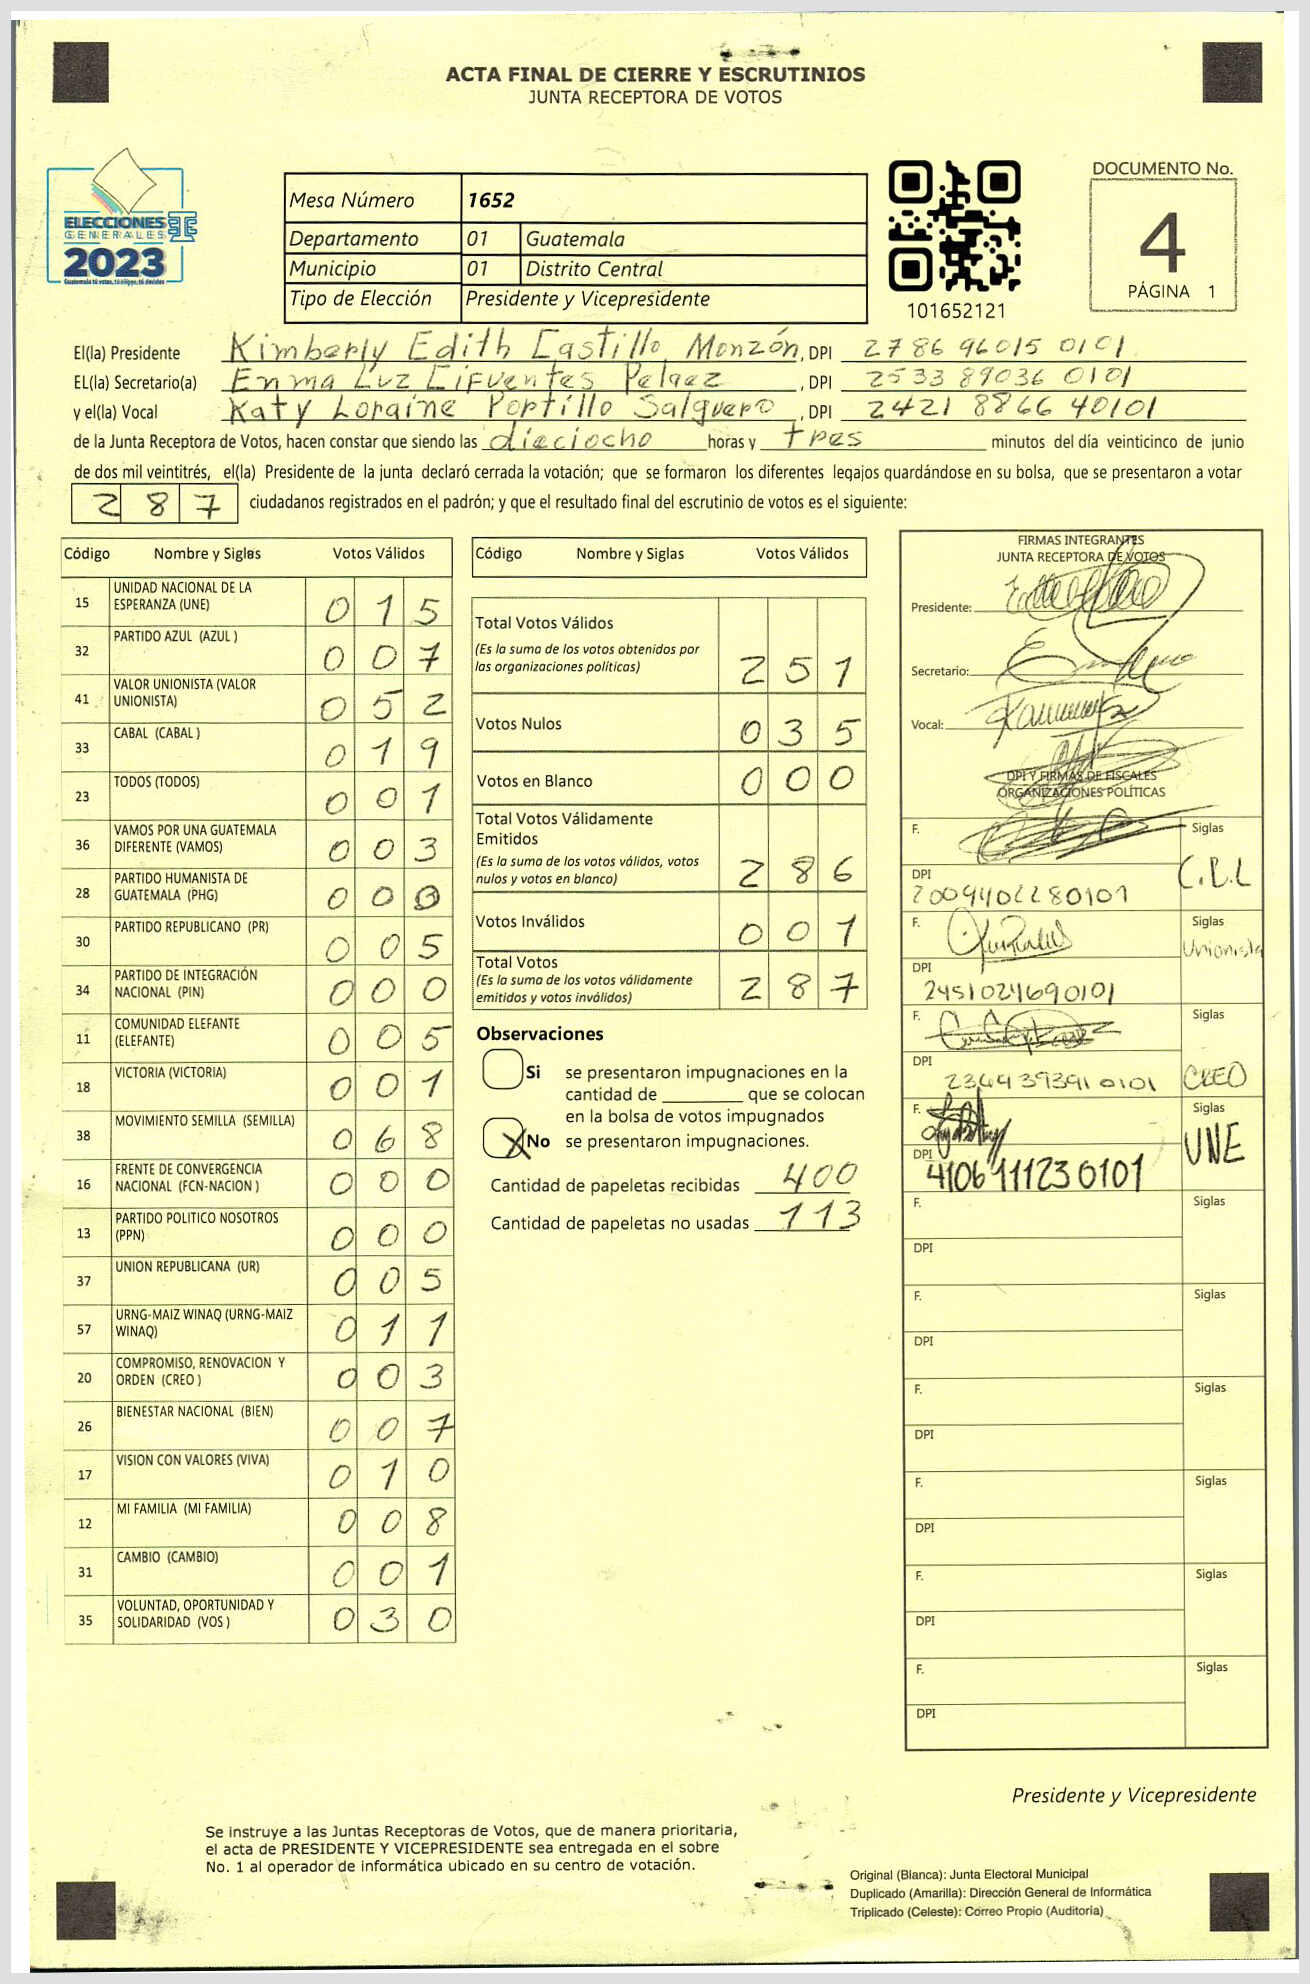 ACTA FINAL DE CIERRE Y ESCRUTINIOS
JUNTA RECEPTORA DE VOTOS
ELECCIONES
GENERALES
2023
Guatemala tú votas, tú eliges, tú decides
Mesa Número 1652
Departamento 01 Guatemala
Municipio 01 Distrito Central
Tipo de Elección Presidente y Vicepresidente
101652121
DOCUMENTO No.
4
PÁGINA 1
El(la) Presidente Kimberly Edith Castillo Monzón, DPI 2786 96015 0101
EL(la) Secretario(a) Enma Luz Cifuentes Pelaez, DPI 2533 89036 0101
y el(la) Vocal Katy Loraine Portillo Salguero, DPI 2421 8866 40101
de la Junta Receptora de Votos, hacen constar que siendo las dieciocho horas y tres minutos del día veinticinco de junio
de dos mil veintitrés, el(la) Presidente de la junta declaró cerrada la votación; que se formaron los diferentes legajos quardándose en su bolsa, que se presentaron a votar
287 ciudadanos registrados en el padrón; y que el resultado final del escrutinio de votos es el siguiente:
Código Nombre y Siglas Votos Válidos
15 UNIDAD NACIONAL DE LA ESPERANZA (UNE) 015
32 PARTIDO AZUL (AZUL ) 007
41 VALOR UNIONISTA (VALOR UNIONISTA) 052
33 CABAL (CABAL ) 019
23 TODOS (TODOS) 001
36 VAMOS POR UNA GUATEMALA DIFERENTE (VAMOS) 003
28 PARTIDO HUMANISTA DE GUATEMALA (PHG) 000
30 PARTIDO REPUBLICANO (PR) 005
34 PARTIDO DE INTEGRACIÓN NACIONAL (PIN) 000
11 COMUNIDAD ELEFANTE (ELEFANTE) 005
18 VICTORIA (VICTORIA) 001
38 MOVIMIENTO SEMILLA (SEMILLA) 068
16 FRENTE DE CONVERGENCIA NACIONAL (FCN-NACION ) 000
13 PARTIDO POLITICO NOSOTROS (PPN) 000
37 UNION REPUBLICANA (UR) 005
57 URNG-MAIZ WINAQ (URNG-MAIZ WINAQ) 011
20 COMPROMISO, RENOVACION Y ORDEN (CREO ) 003
26 BIENESTAR NACIONAL (BIEN) 007
17 VISION CON VALORES (VIVA) 010
12 MI FAMILIA (MI FAMILIA) 008
31 CAMBIO (CAMBIO) 001
35 VOLUNTAD, OPORTUNIDAD Y SOLIDARIDAD (VOS ) 030
Código Nombre y Siglas Votos Válidos
Total Votos Válidos
(Es la suma de los votos obtenidos por
las organizaciones políticas) 251
Votos Nulos 035
Votos en Blanco 000
Total Votos Válidamente
Emitidos
(Es la suma de los votos válidos, votos
nulos y votos en blanco) 286
Votos Inválidos 001
Total Votos
(Es la suma de los votos válidamente
emitidos y votos inválidos) 287
Observaciones
Si se presentaron impugnaciones en la
cantidad de ________ que se colocan
en la bolsa de votos impugnados
X No se presentaron impugnaciones.
Cantidad de papeletas recibidas 400
Cantidad de papeletas no usadas 113
FIRMAS INTEGRANTES
JUNTA RECEPTORA DE VOTOS
Presidente:
Secretario:
Vocal:
DPI Y FIRMAS DE FISCALES
ORGANIZACIONES POLÍTICAS
F. Siglas
DPI C.B.L
2009402280101
F. Siglas
Unionista
DPI
2451024690101
F. Siglas
DPI
2364393910101 CREO
F. Siglas
UNE
DPI
4106111230101
F. Siglas
DPI
F. Siglas
DPI
F. Siglas
DPI
F. Siglas
DPI
F. Siglas
DPI
F. Siglas
DPI
Presidente y Vicepresidente
Se instruye a las Juntas Receptoras de Votos, que de manera prioritaria,
el acta de PRESIDENTE Y VICEPRESIDENTE sea entregada en el sobre
No. 1 al operador de informática ubicado en su centro de votación.
Original (Blanca): Junta Electoral Municipal
Duplicado (Amarilla): Dirección General de Informática
Triplicado (Celeste): Correo Propio (Auditoría)